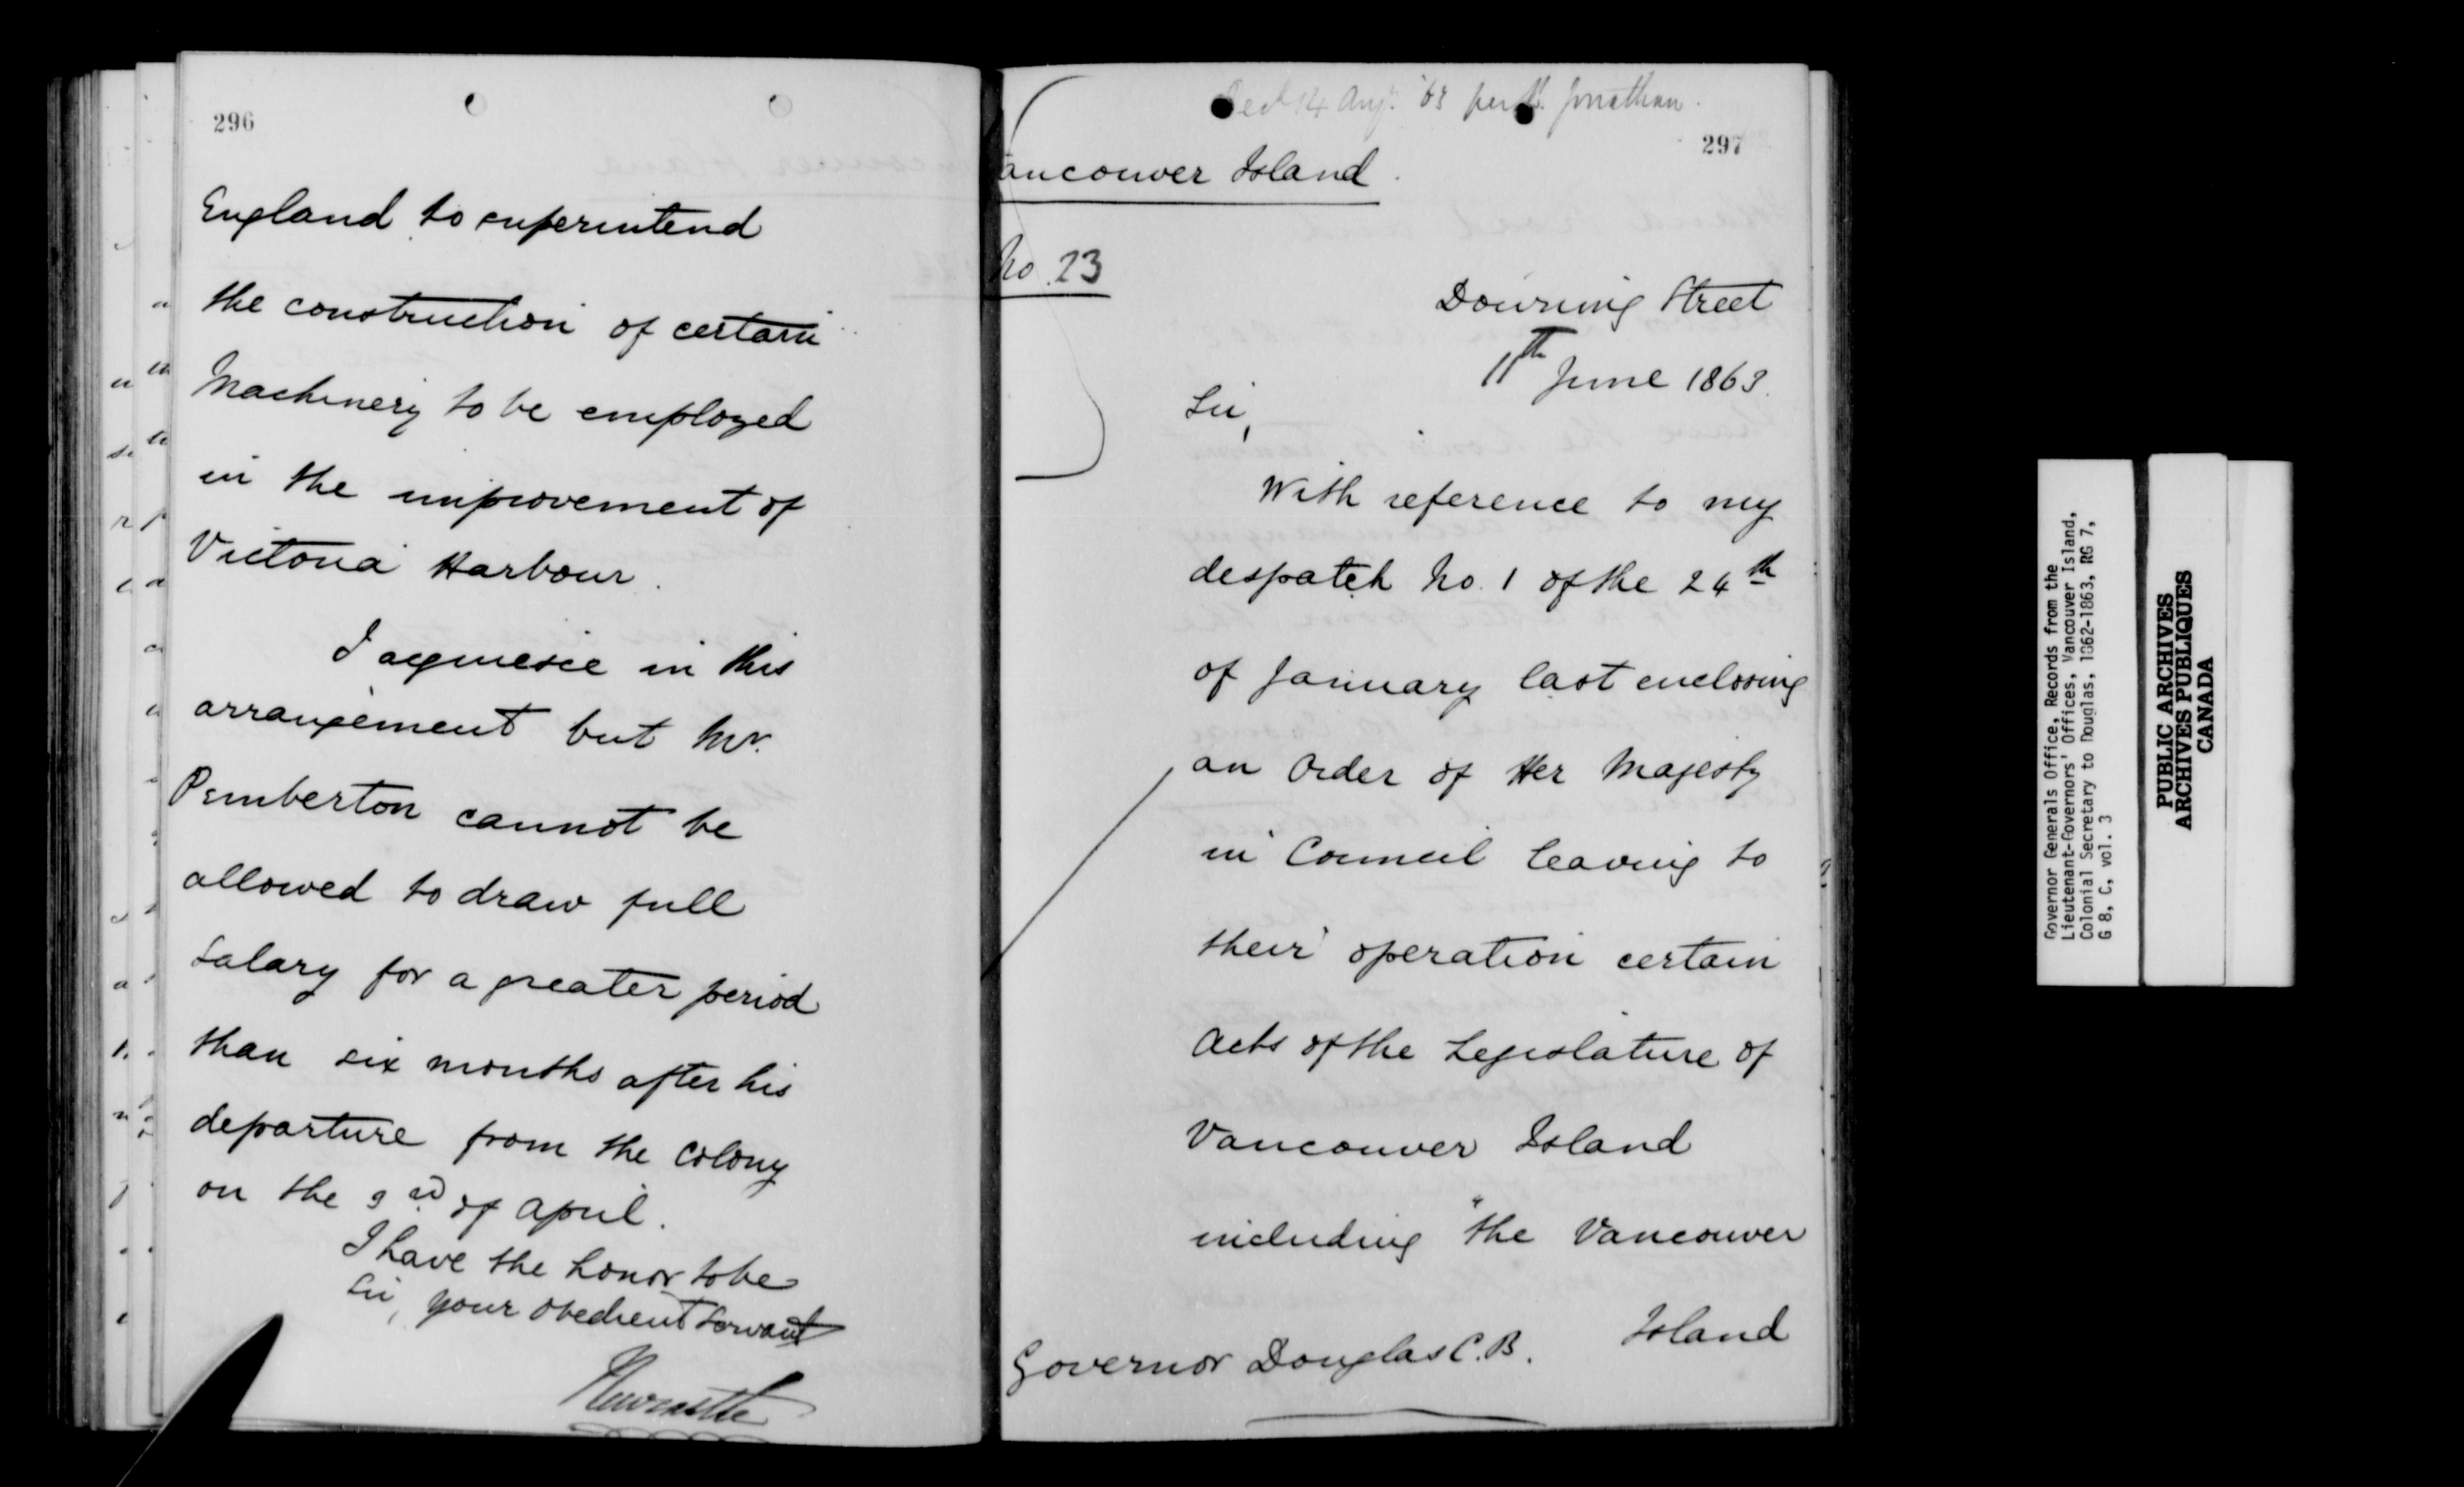 296
England to superintend
the construction of certain
Machinery to be employed
in the improvement of
Victoria Harbour.
I acquiesce in this
arrangement but Mr.
Pemberton cannot be
allowed to draw full
Salary for a greater period
than six months after his
departure from the Colony
on the 3rd of April.
I have the honor to be
Sir, your obedient Servant
Newcastle
Recd 14 Augt. '63 per Jonathan.
297
ancouver Island.
No. 23
Downing Street
11th June 1863.
Sir,
With reference to my
despatch No. 1 of the 24th
of January last enclosing
an Order of Her Majesty
in Council leaving to
their operation certain
Acts of the Legislature of
Vancouver Island
including "the Vancouver
Island
Governor Douglas C.B.
Governor Generals Office, Records from the
Lieutenant-Governors' Offices, Vancouver Island,
Colonial Secretary to Douglas, 1862-1863, RG 7,
G 8, C, vol. 3
PUBLIC ARCHIVES
ARCHIVES PUBLIQUES
CANADA